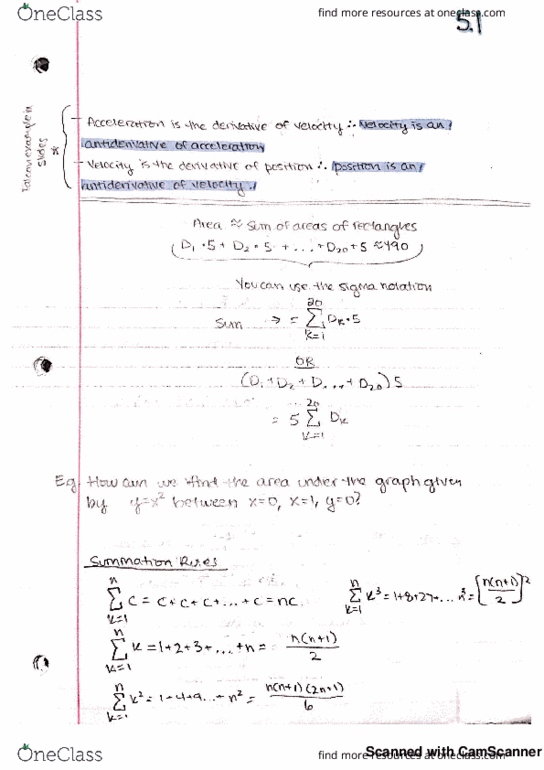 OneClass
find more resources at oneclass.com
5.1
Acceleration is the derivative of velocity ∴ velocity is an
antiderivative of acceleration
Velocity is the derivative of position ∴ position is an
antiderivative of velocity.
example in
slides *
Area ≈ Sum of areas of rectangles
D₁ · 5 + D₂ · 5 + ... + D₂₀ + 5 ≈ 490
You can use the sigma notation
Sum → = 20 Σ k=1 Dk · 5
OR
(D₁ + D₂ + D... + D₂₀) 5
= 5 20 Σ k=1 Dk
Eg. How can we find the area under the graph given
by y=x² between x=0, x=1, y=0?
Summation Rules
n Σ k=1 C = C + C + C + ... + C = nc
n Σ k=1 k³ = 1+8+27+... n³ = [n(n+1)/2]²
n Σ k=1 k = 1+2+3+...+n = n(n+1)/2
n Σ k=1 k² = 1+4+9...+ n² = n(n+1)(2n+1)/6
OneClass
find more resources at oneclass.com
Scanned with CamScanner